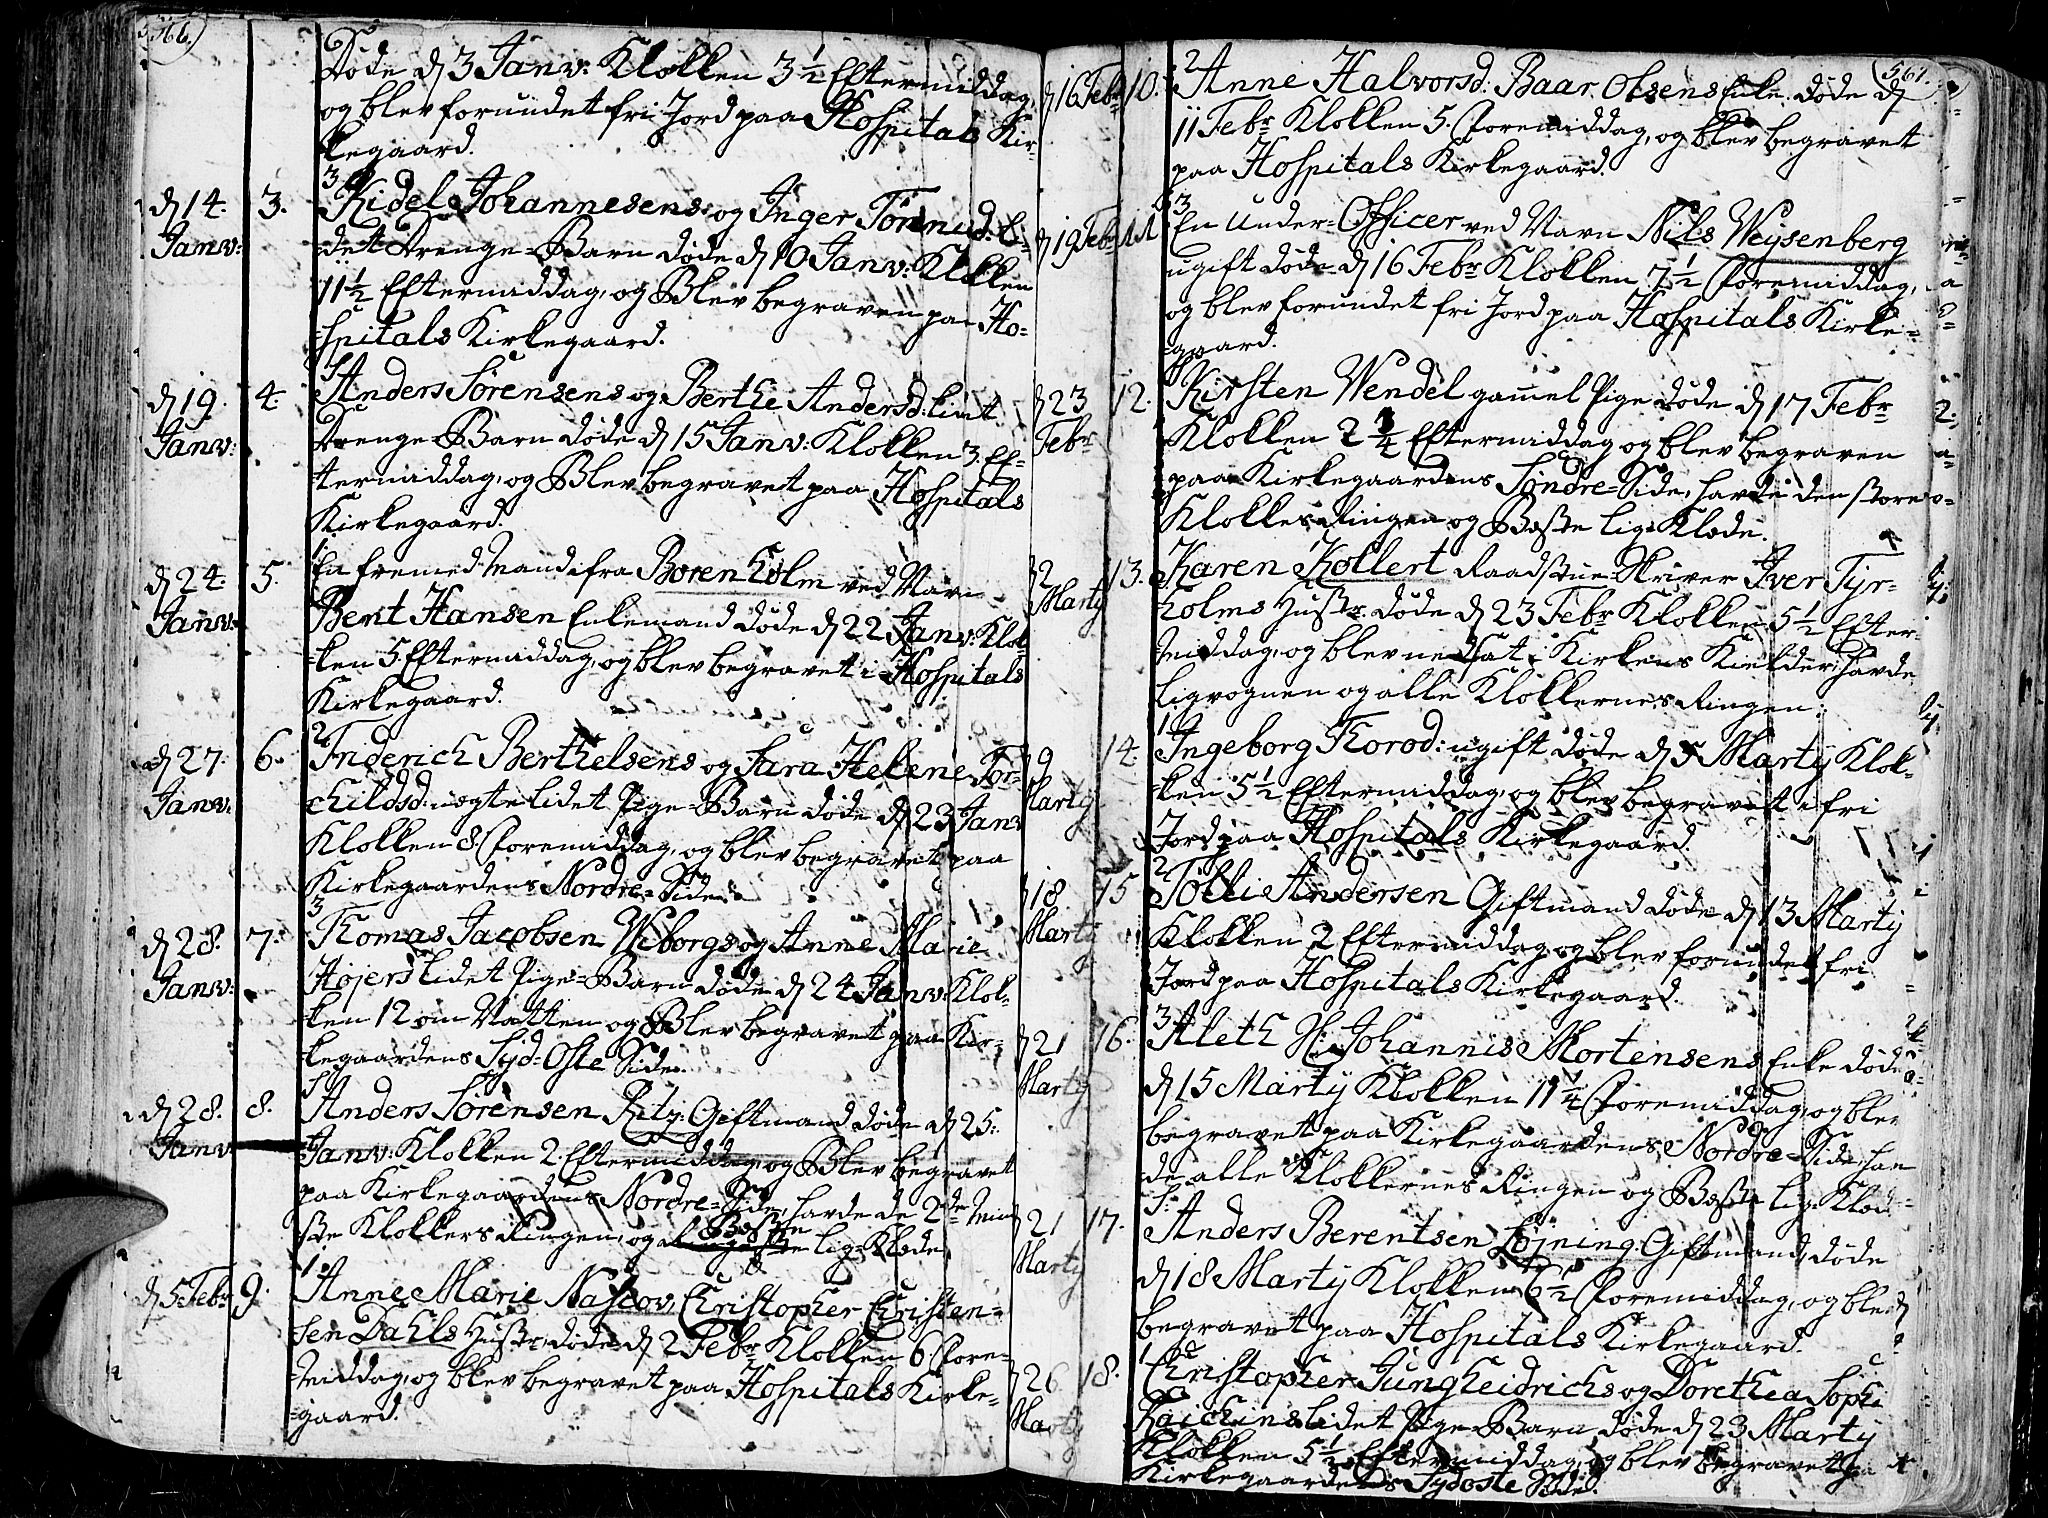 566.
Døde d 3 Janv: Klokken 3½ Eftermiddag,
og blev forundet fri Jord paa Hospitals Kir-
kegaard.
d 14. Janv: 3.
3
Kidel Johannesens og Inger Tönnisd: li-
det Drenge-Barn døde d 10 Janv: Klokken
11½ Eftermiddag, og Blev begraven paa Ho-
spitals Kirkegaard.
d 19. Janv: 4.
Anders Sørensens og Berthe Andersd: liut
Drenge-Barn døde d 15 Janv: Klokken 3 Ef-
termiddag, og Blev begravet paa Hospitals
Kirkegaard.
d 24. Janv: 5.
1.
En fremed Mand fra Borenholm ved Navn
Bent Hansen Enkemand døde d 22 Janv: Klok-
ken 5 Eftermiddag, og blev begravet i Hospitals
Kirkegaard.
d 27. Janv: 6.
2
Friderich Berthelsens og Sara Helene Tor-
childsd: uegte lidet Pige-Barn døde d 23 Janv
Klokken 8 Foremiddag, og blev begravet paa
Kirkegaardens Nordre-Side.
d 28. Janv: 7.
3
Thomas Jacobsen Wiborgs og Anne Marie
Højers lidet Pige-Barn døde d 24 Janv: Klok-
ken 12 om Natten og Blev begravet paa Kir-
kegaardens Syd-Oste Side.
d 28. Janv 8.
Anders Sørensen Ritz: Giftmand døde d 25.
Janv: Klokken 2 Eftermiddag, og Blev begravet
paa Kirkegaardens Nordre-Side, havde de 2de Min-
ste Klokkers Ringen, og Beste lig-Klæde.
d 5 Febr 9.
1.
Anne Marie Nascov, Christopher Christen-
sen Dahls Hustr: døde d 2 Febr Klokken 6 Fore-
middag, og blev begravet paa Hospitals Kirke-
gaard.
567.
d 16 Febr 10.
2
Anne Halvorsd: Baar Olsens Enke døde d
11 Febr Klokken 5. Foremiddag, og blev begravet
paa Hospitals Kirkegaard.
d 19 Febr 11
3
En Under-Officer ved Navn Nils Weysenberg
ugift døde d 16 Febr Klokken 7½ Foremiddag,
og blev forundet fri Jord paa Hospitals Kirke-
gaard.
d 23 Febr 12.
Kirsten Wendel gamel Pige døde d 17 Febr
Klokken 2¾ Eftermiddag og blev begraven
paa Kirkegaardens Søndre-Side, havde den store
Klokkes Ringen og Beste lig-Klæde.
d 2 Marty 13.
Karen Kollert Raadstue-Skriver Iver Tyr-
holms Hustr: døde d 23 Febr Klokken 5½ Efter-
middag, og blev nedsat i Kirkens Kielder, havde
Ligvognen og alle Klokkernes Ringen.
d 9 Marty 14.
1
Ingeborg Thorod: ugift døde d 5 Marty Klok-
ken 5½ Eftermiddag, og blev begravet i fri
Jord paa Hospitals Kirkegaard.
d 18 Marty 15
2
Tölli Andersen Giftmand døde d 13 Marty
Klokken 2 Eftermiddag og blev forundet fri
Jord paa Hospitals Kirkegaard.
d 21 Marty 16.
3
Aleth Hr Johannis Mortensens Enke døde
d 15 Marty Klokken 11¼ Foremiddag, og blev
begravet paa Kirkegaardens Nordre-Side, hav-
de alle Klokkernes Ringen og Beste lig-Klæde.
d 21 Marty 17.
Anders Berentsen Löjning: Giftmand døde
d 18 Marty Klokken 6½ Foremiddag, og blev
begravet paa Hospitals Kirkegaard.
d 26 Marty 18.
1
Christopher Jungheidrichs og Dorethea Sophi
Raichens lidet Pige-Barn døde d 23 Marty
Klokken 5½ Eftermiddag, og blev begravet paa
Kirkegaardens Sydoste Side.